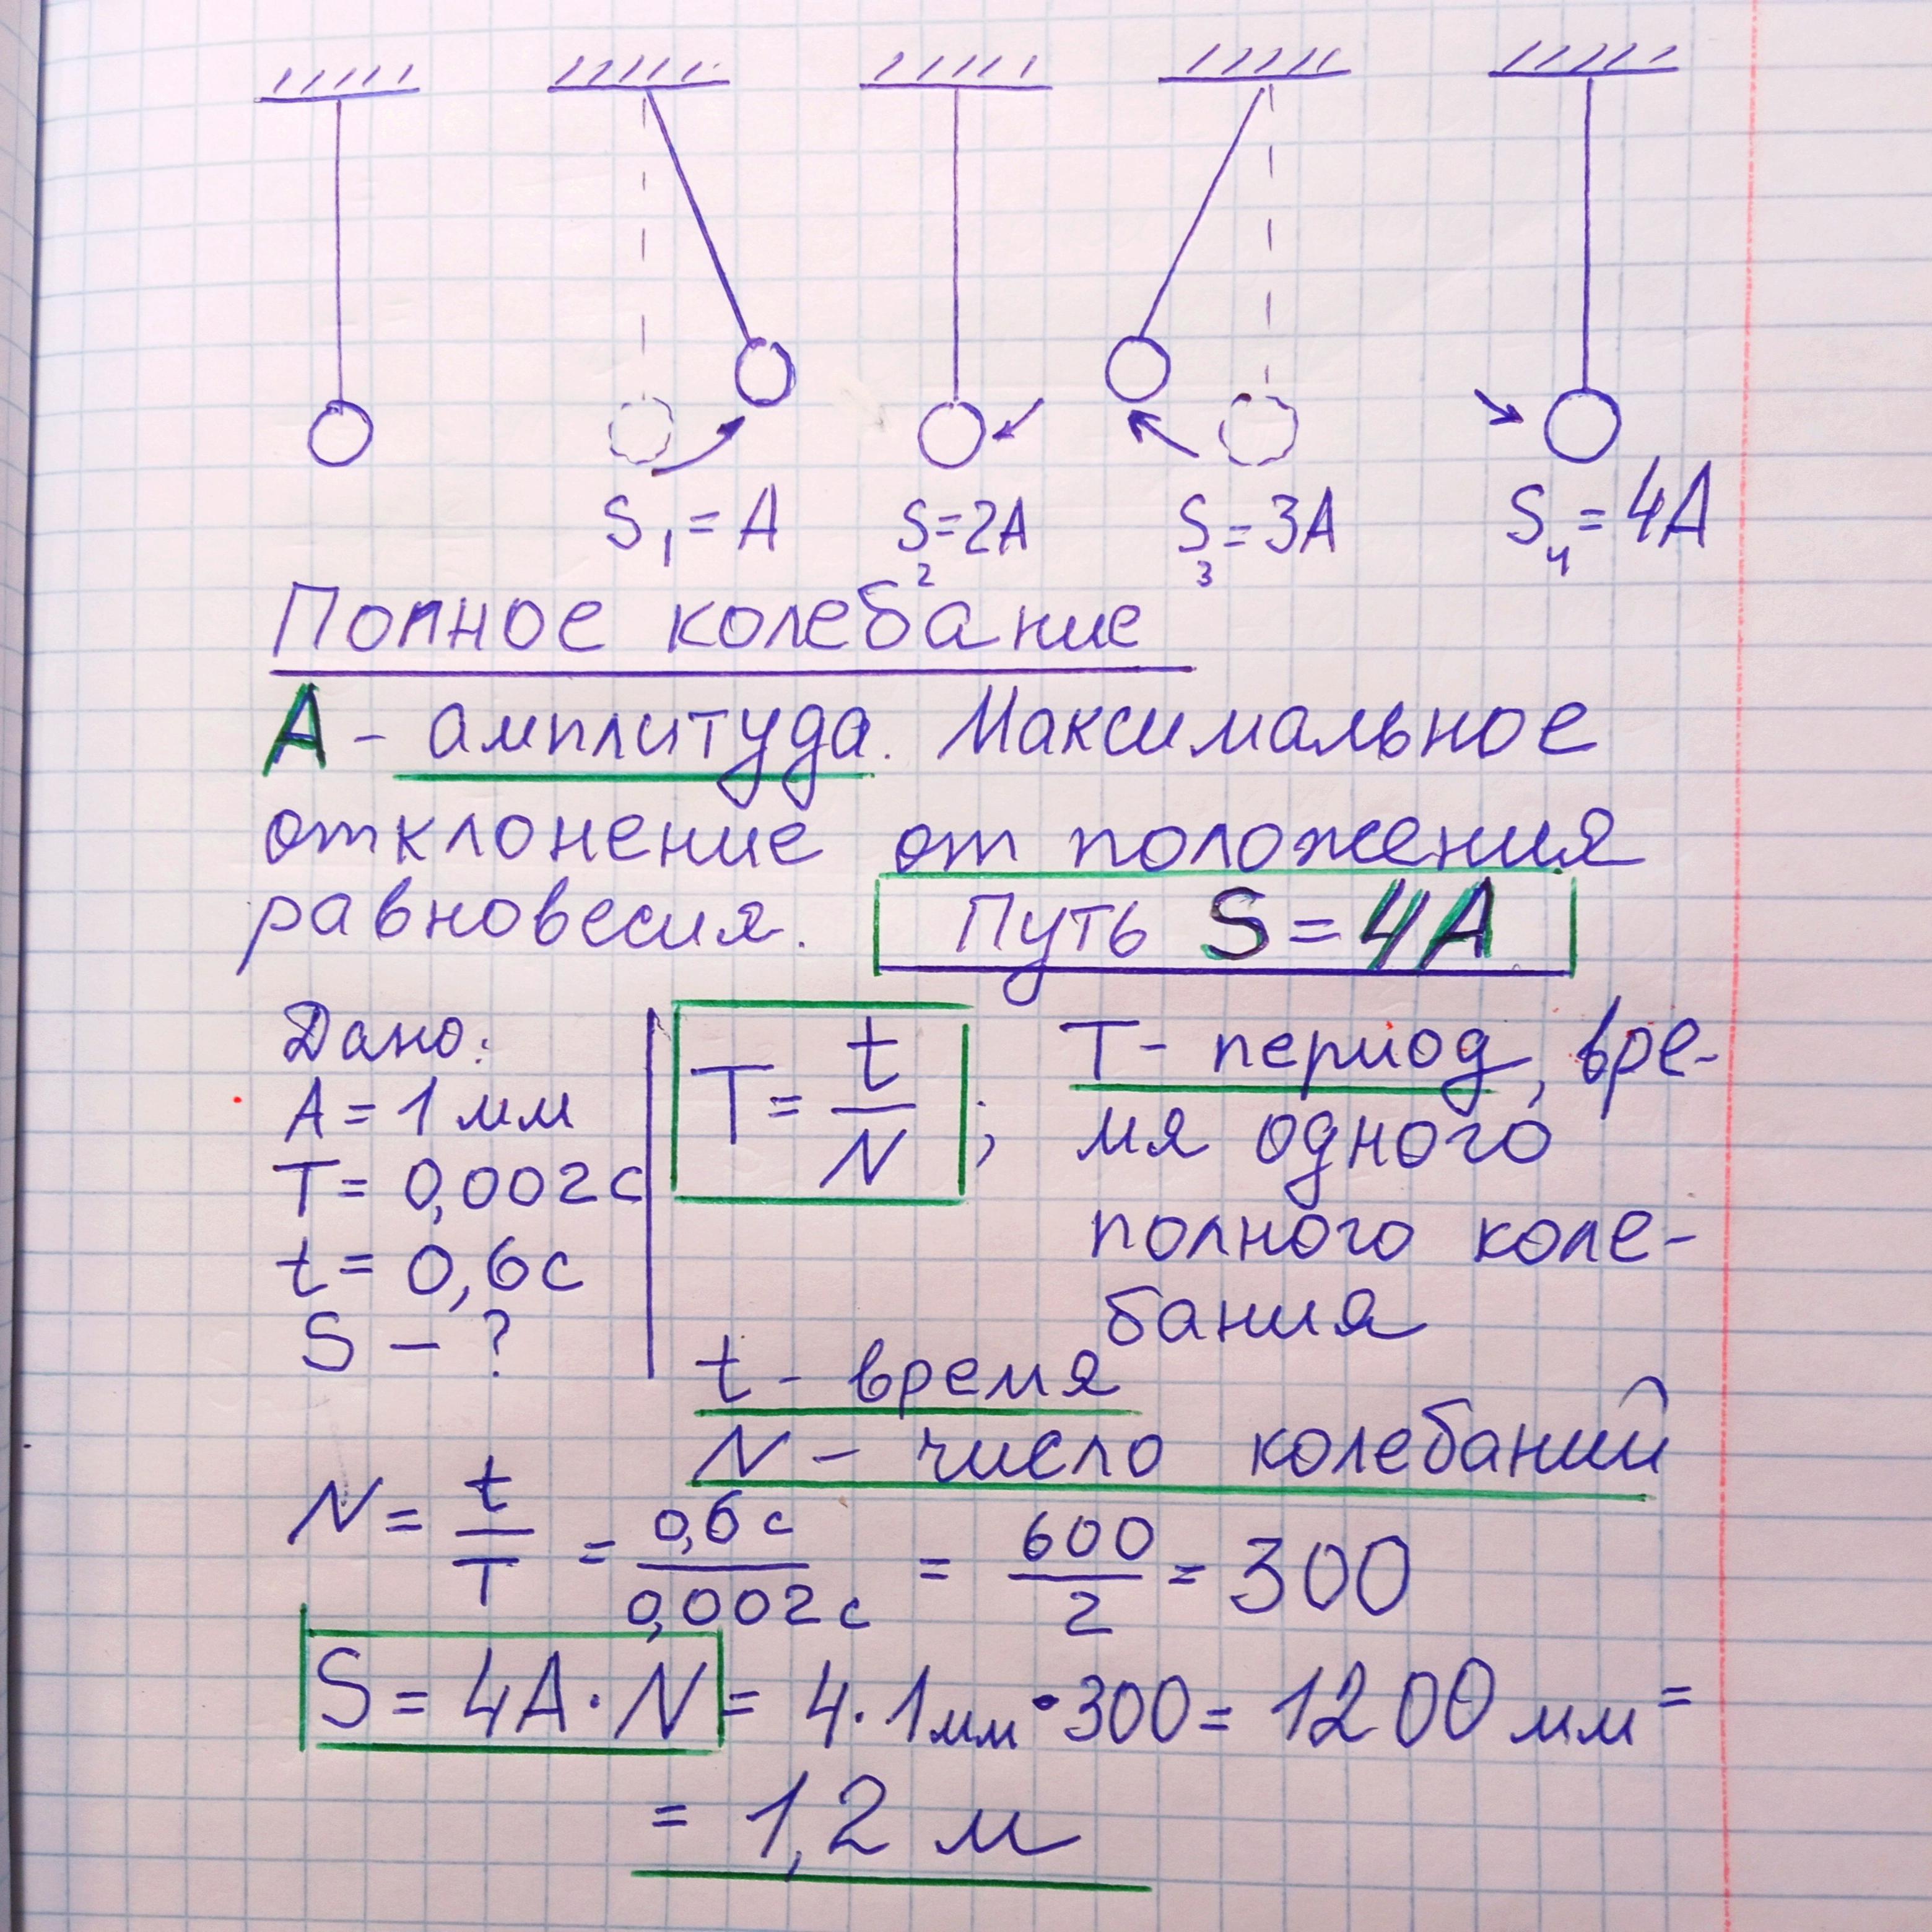 S₁ = A S₂ = 2A S₃ = 3A S₄ = 4A
Полное колебание
А - амплитуда. Максимальное
отклонение от положения
равновесия. Путь S = 4A
Дано:
A = 1 мм
T = 0,002 с
t = 0,6 с
S - ?
T = t/N ; T - период, вре-
мя одного
полного коле-
бания
t - время
N - число колебаний
N = t/T = 0,6 с/0,002 с = 600/2 = 300
S = 4A · N = 4 · 1 мм · 300 = 1200 мм =
= 1,2 м